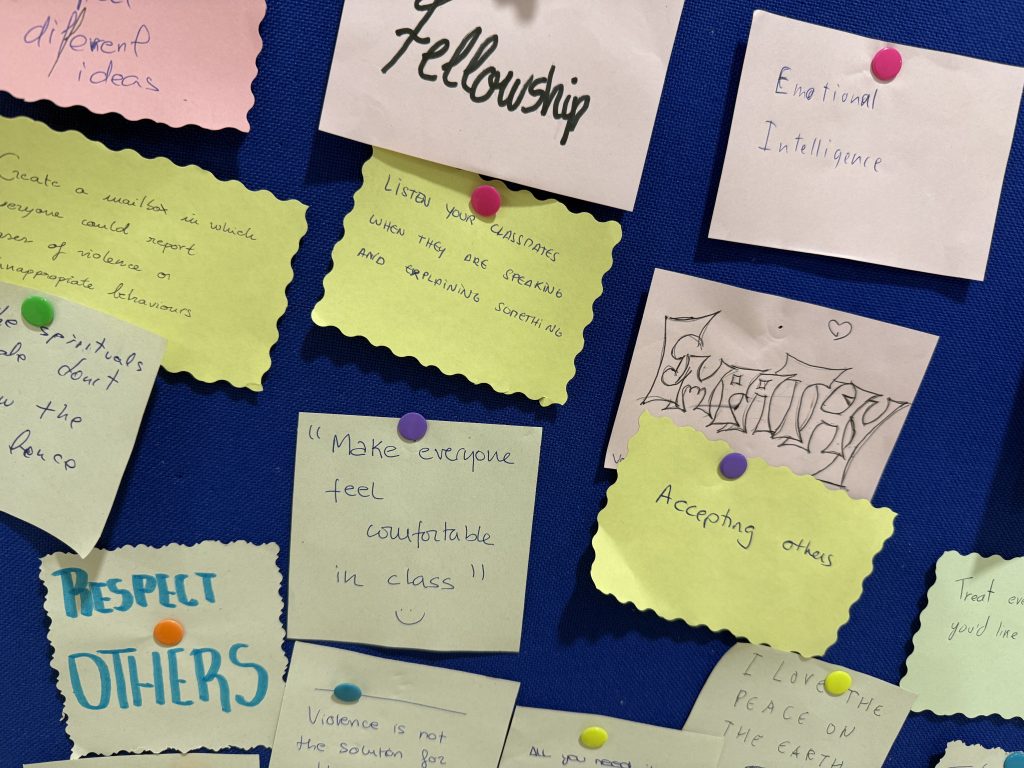 different
ideas
Fellowship
Emotional
Intelligence
Create a mailbox in which
everyone could report
of violence or
inappropiate behaviours
LISTEN YOUR CLASSMATES
WHEN THEY ARE SPEAKING
AND EXPLAINING SOMETHING
EMPATHY
spirituals
don't
the
"Make everyone
feel
comfortable
in class"
Accepting others
RESPECT
OTHERS
Treat
you'd like
Violence is not
the solution for
ALL YOU NEED
I LOVE THE
PEACE ON
THE EARTH